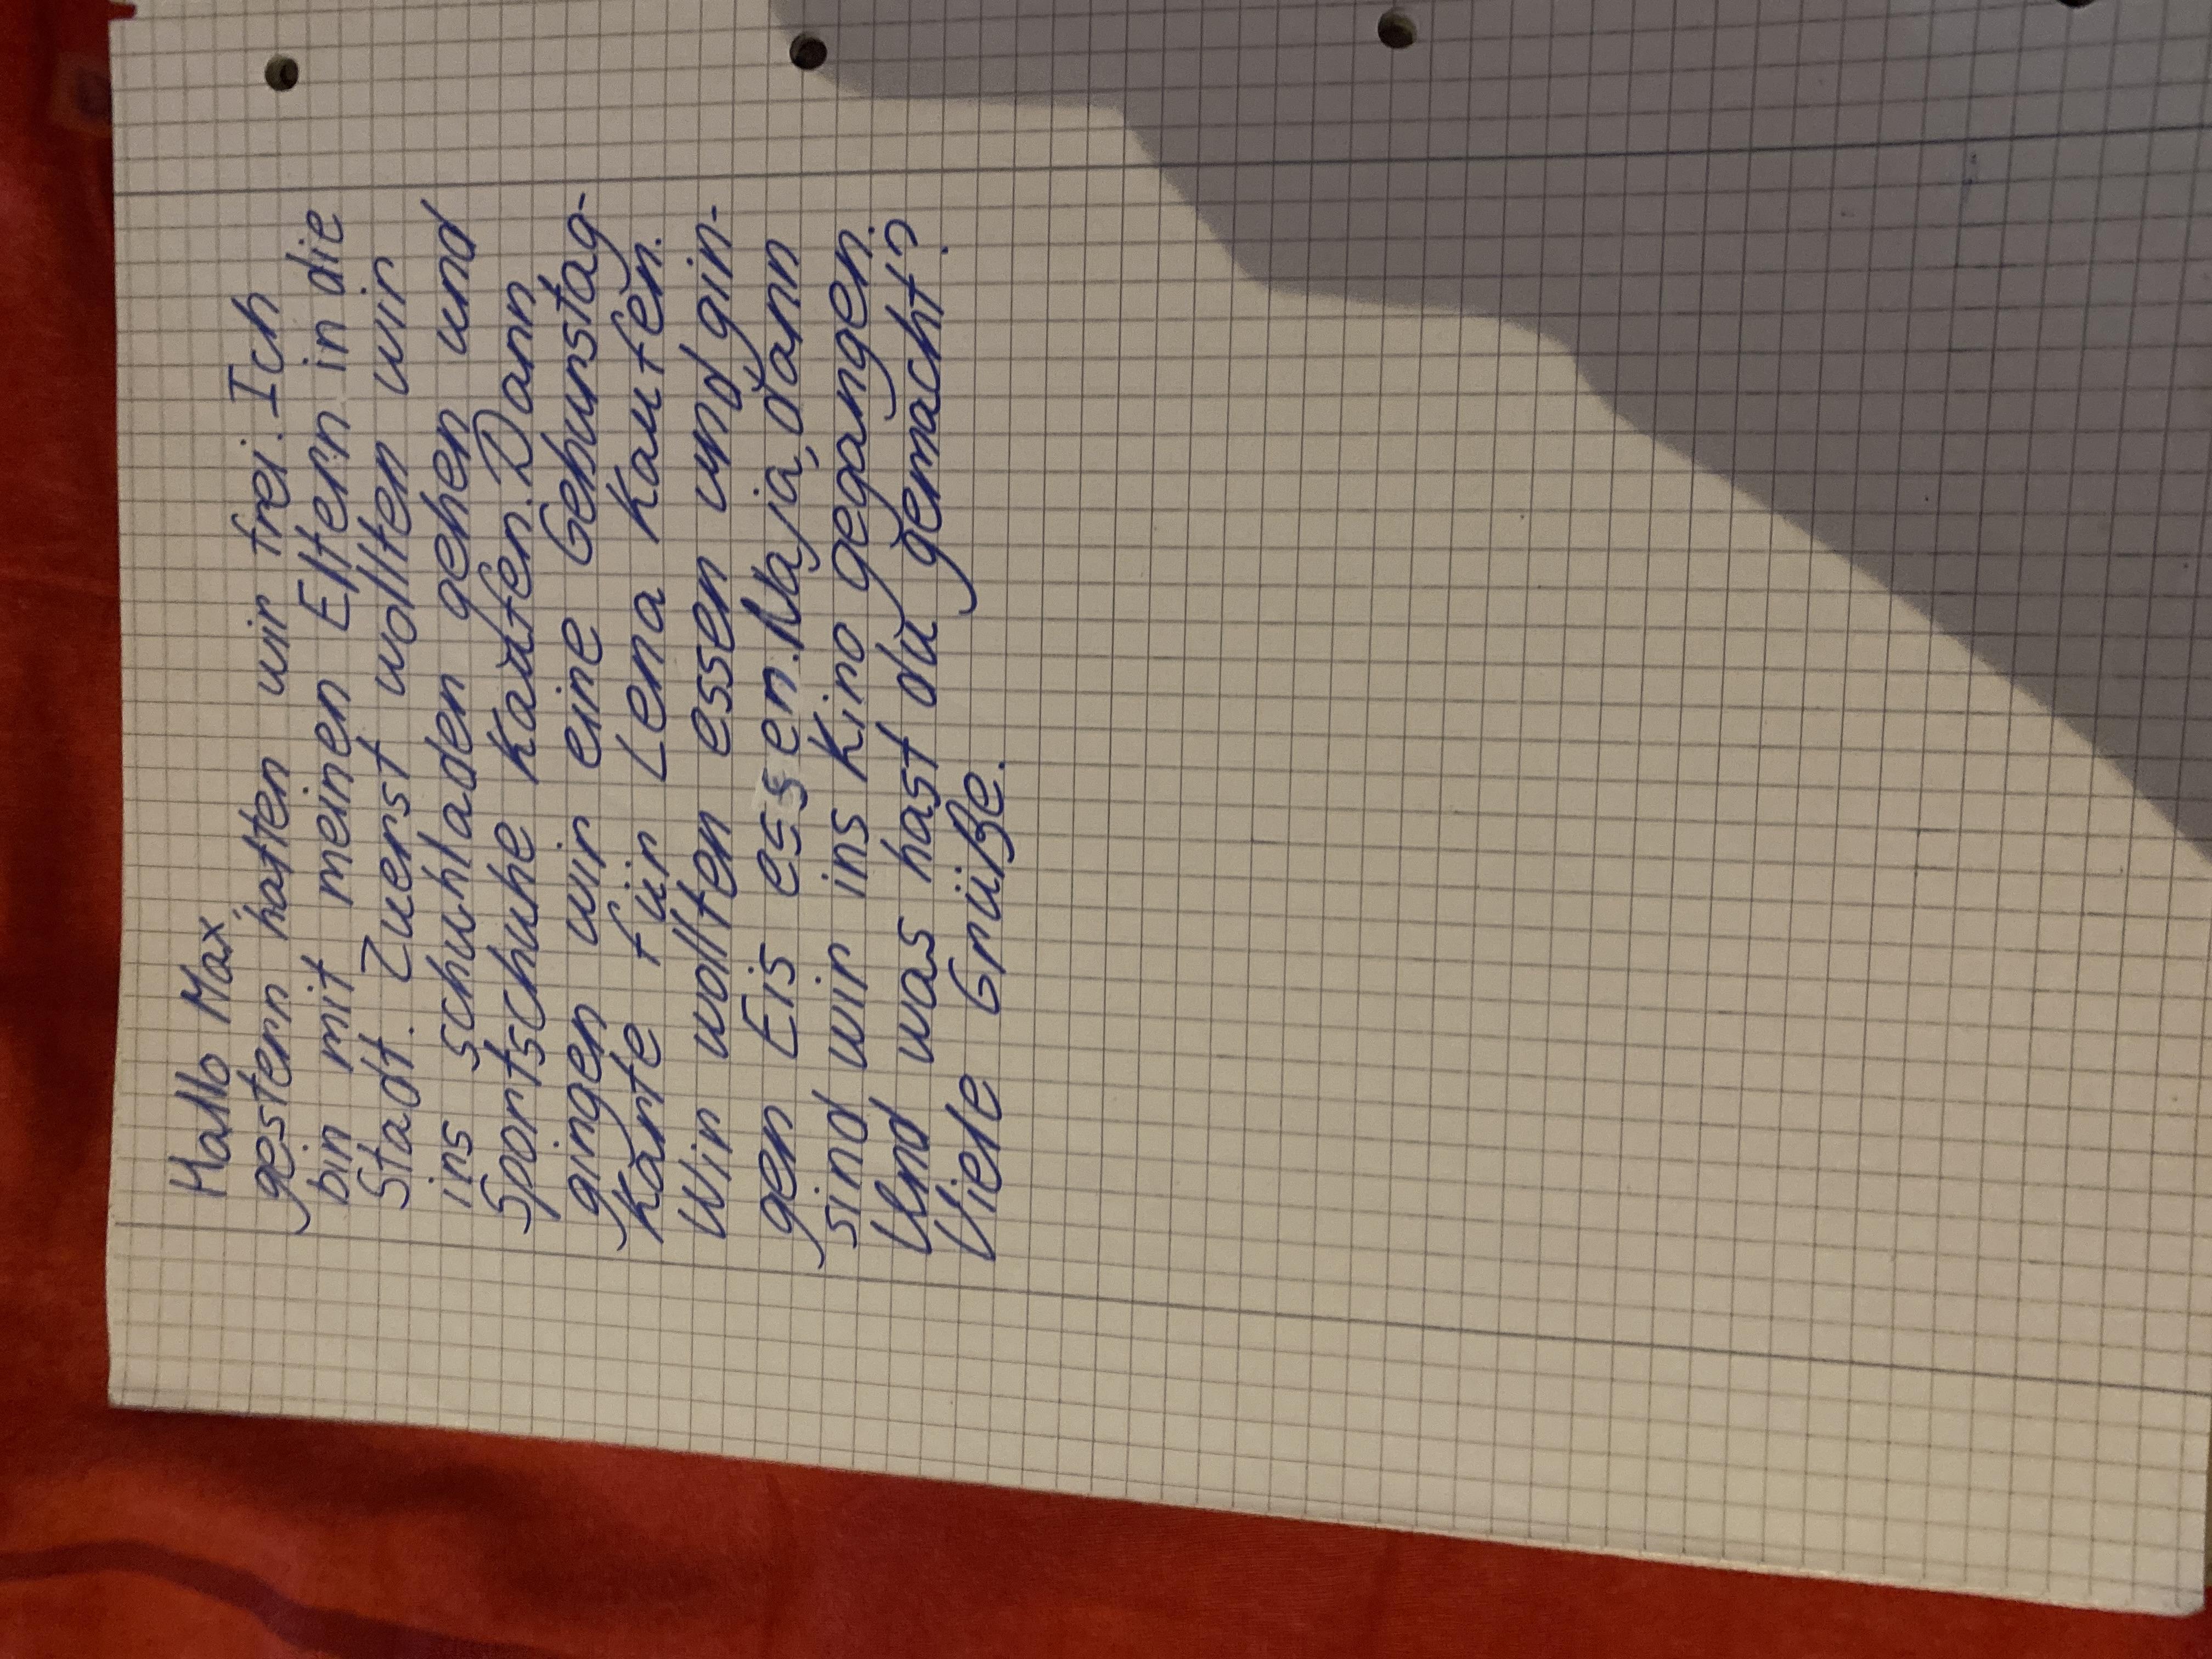 Hallo Max,
gestern hatten wir frei. Ich
bin mit meinen Elltern in die
Stadt. Zuerst wollten wir
ins schuhladen gehen und
Sportschuhe Kaufen. Dann
gingen wir eine Geburstag-
Karte für Lena Kaufen.
Wir wollten essen und gin-
gen Eis essen. Naja, dann
sind wir ins Kino gegangen.
Und was hast du gemacht?
Viele Grüße.